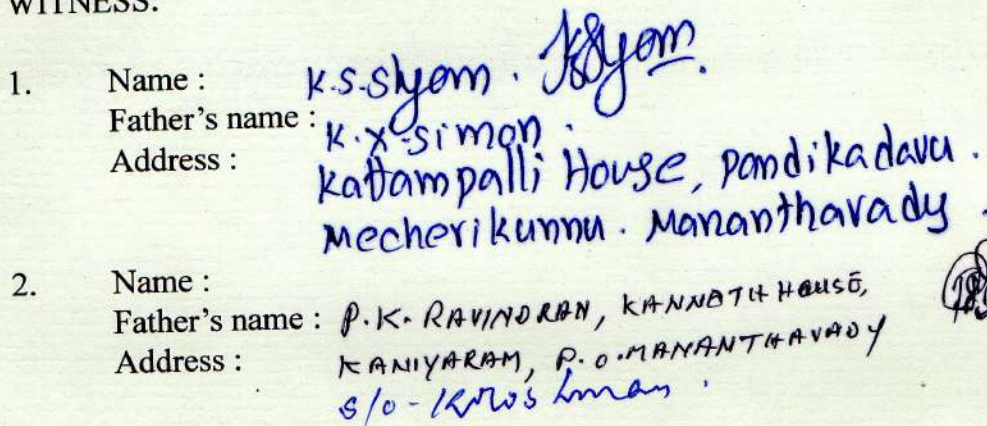 WITNESS:
1. Name : K.S.Shyam . KSShyam.
Father's name : K.X.Simon .
Address : Kattampalli House, Pandikadavu .
Mecherikunnu . Mananthavady .
2. Name :
Father's name : P.K. RAVINDRAN, KANNOTH HOUSE,
Address : KANIYARAM, P.O.MANANTHAVADY
S/o -